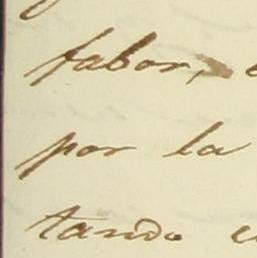 fabor,
por la
tando